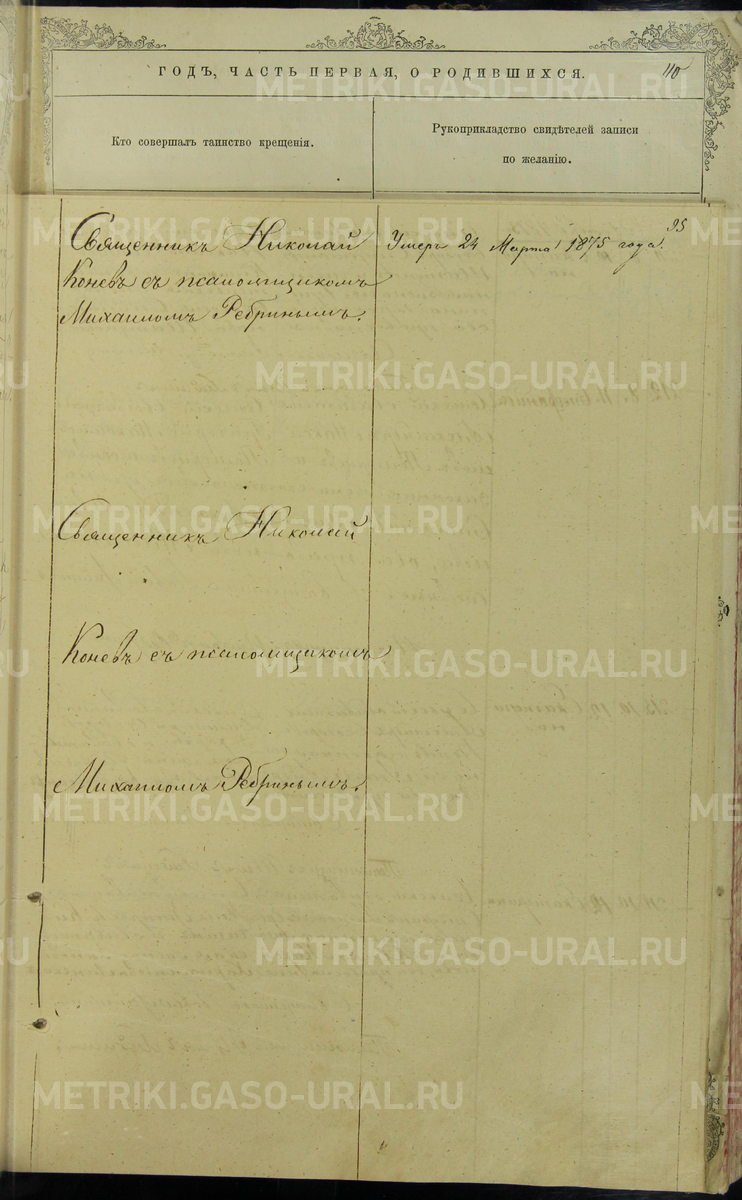 ГОДЪ, ЧАСТЬ ПЕРВАЯ, О РОДИВШИХСЯ.
110
Кто совершалъ таинство крещенія.
Рукоприкладство свидѣтелей записи
по желанію.
95
Священникъ Николай
Умеръ 24 Марта 1875 года.
Коневъ съ псаломщикомъ
Михаиломъ Ребринымъ.
Священникъ Николай
Коневъ съ псаломщикомъ
Михаиломъ Ребринымъ.
METRIKI.GASO-URAL.RU